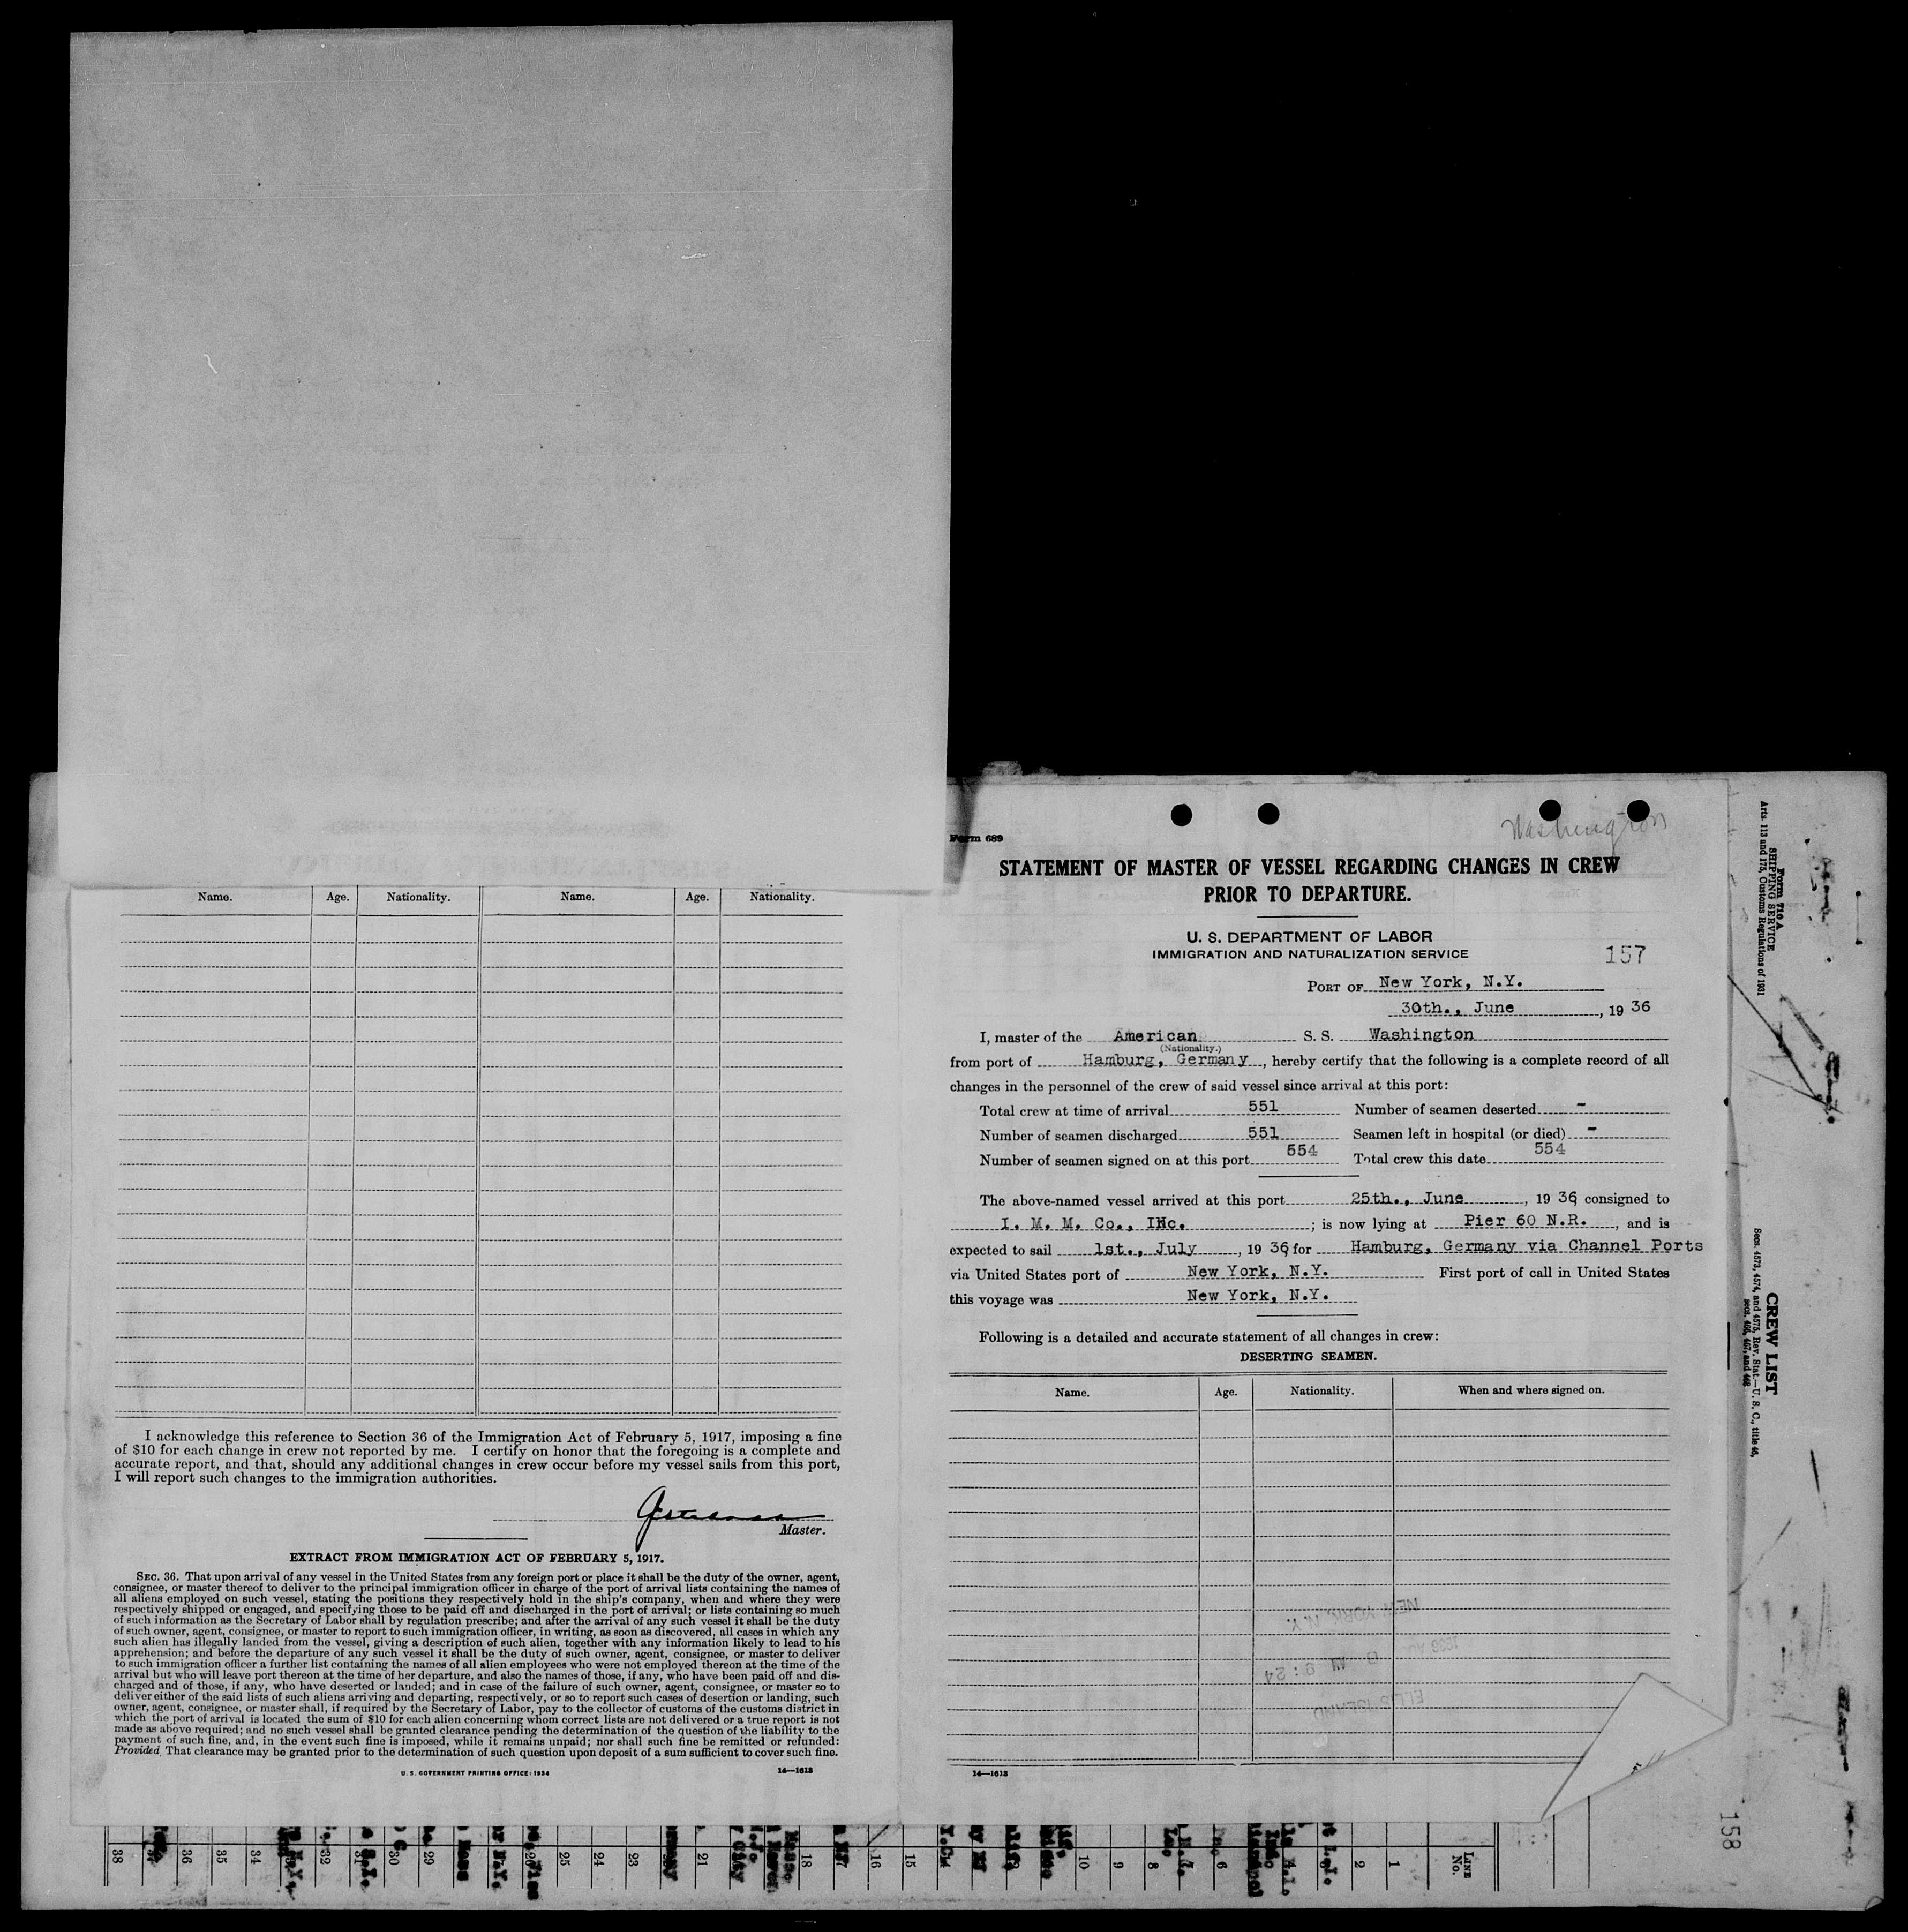 Name. Age. Nationality. Name. Age. Nationality.
I acknowledge this reference to Section 36 of the Immigration Act of February 5, 1917, imposing a fine
of $10 for each change in crew not reported by me. I certify on honor that the foregoing is a complete and
accurate report, and that, should any additional changes in crew occur before my vessel sails from this port,
I will report such changes to the immigration authorities.
Master.
EXTRACT FROM IMMIGRATION ACT OF FEBRUARY 5, 1917.
SEC. 36. That upon arrival of any vessel in the United States from any foreign port or place it shall be the duty of the owner, agent,
consignee, or master thereof to deliver to the principal immigration officer in charge of the port of arrival lists containing the names of
all aliens employed on such vessel, stating the positions they respectively hold in the ship's company, when and where they were
respectively shipped or engaged, and specifying those to be paid off and discharged in the port of arrival; or lists containing so much
of such information as the Secretary of Labor shall by regulation prescribe; and after the arrival of any such vessel it shall be the duty
of such owner, agent, consignee, or master to report to such immigration officer, in writing, as soon as discovered, all cases in which any
such alien has illegally landed from the vessel, giving a description of such alien, together with any information likely to lead to his
apprehension; and before the departure of any such vessel it shall be the duty of such owner, agent, consignee, or master to deliver
to such immigration officer a further list containing the names of all alien employees who were not employed thereon at the time of the
arrival but who will leave port thereon at the time of her departure, and also the names of those, if any, who have been paid off and dis-
charged and of those, if any, who have deserted or landed; and in case of the failure of such owner, agent, consignee, or master so to
deliver either of the said lists of such aliens arriving and departing, respectively, or so to report such cases of desertion or landing, such
owner, agent, consignee, or master shall, if required by the Secretary of Labor, pay to the collector of customs of the customs district in
which the port of arrival is located the sum of $10 for each alien concerning whom correct lists are not delivered or a true report is not
made as above required; and no such vessel shall be granted clearance pending the determination of the question of the liability to the
payment of such fine, and, in the event such fine is imposed, while it remains unpaid; nor shall such fine be remitted or refunded:
Provided That clearance may be granted prior to the determination of such question upon deposit of a sum sufficient to cover such fine.
U. S. GOVERNMENT PRINTING OFFICE: 1934 14—1613
Washington
Form 689
STATEMENT OF MASTER OF VESSEL REGARDING CHANGES IN CREW
PRIOR TO DEPARTURE.
U. S. DEPARTMENT OF LABOR
IMMIGRATION AND NATURALIZATION SERVICE
157
PORT OF New York, N.Y.
30th., June, 19 36
I, master of the American S. S. Washington
(Nationality.)
from port of Hamburg, Germany, hereby certify that the following is a complete record of all
changes in the personnel of the crew of said vessel since arrival at this port:
Total crew at time of arrival 551 Number of seamen deserted -
Number of seamen discharged 551 Seamen left in hospital (or died) -
Number of seamen signed on at this port 554 Total crew this date 554
The above-named vessel arrived at this port 25th., June, 19 36 consigned to
I. M. M. Co., INc. ; is now lying at Pier 60 N.R. , and is
expected to sail 1st., July, 19 36 for Hamburg, Germany via Channel Ports
via United States port of New York, N.Y. First port of call in United States
this voyage was New York, N.Y.
Following is a detailed and accurate statement of all changes in crew:
DESERTING SEAMEN.
Name. Age. Nationality. When and where signed on.
NEW YORK, N.Y.
9:24
ELLIS ISLAND
14—1613
Form 710 A
SHIPPING SERVICE
Arts. 113 and 175, Customs Regulations of 1931
CREW LIST
Secs. 4573, 4574, and 4575, Rev. Stat.—U. S. C., title 46,
secs. 466, 467, and 468
158
LINE No. 1 2 6 8 9 10 15 16 18 21 23 24 25 29 30 32 34 35 36 38